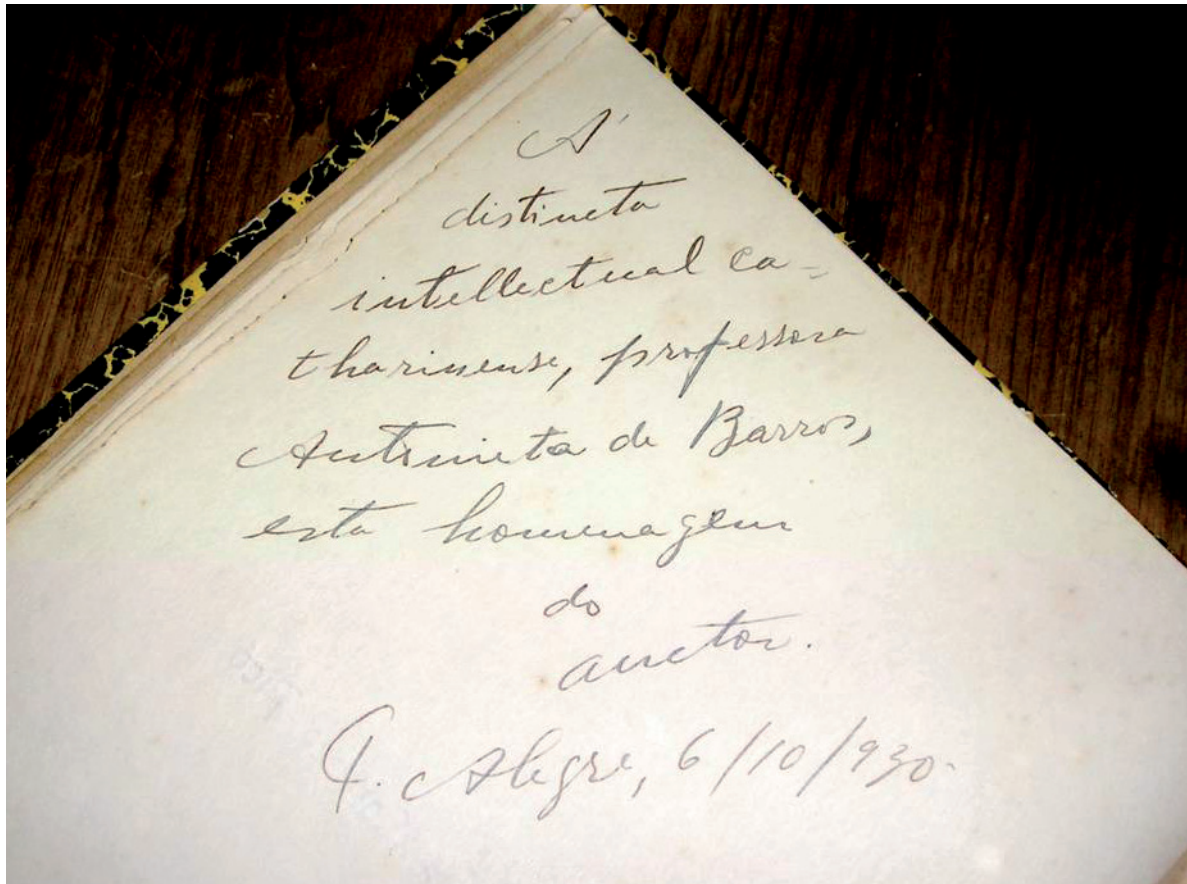 Á
distincta
intellectual ca-
tharinense, professora
Antonieta de Barros,
esta homenagem
do
auctor.
P. Alegre, 6/10/930.